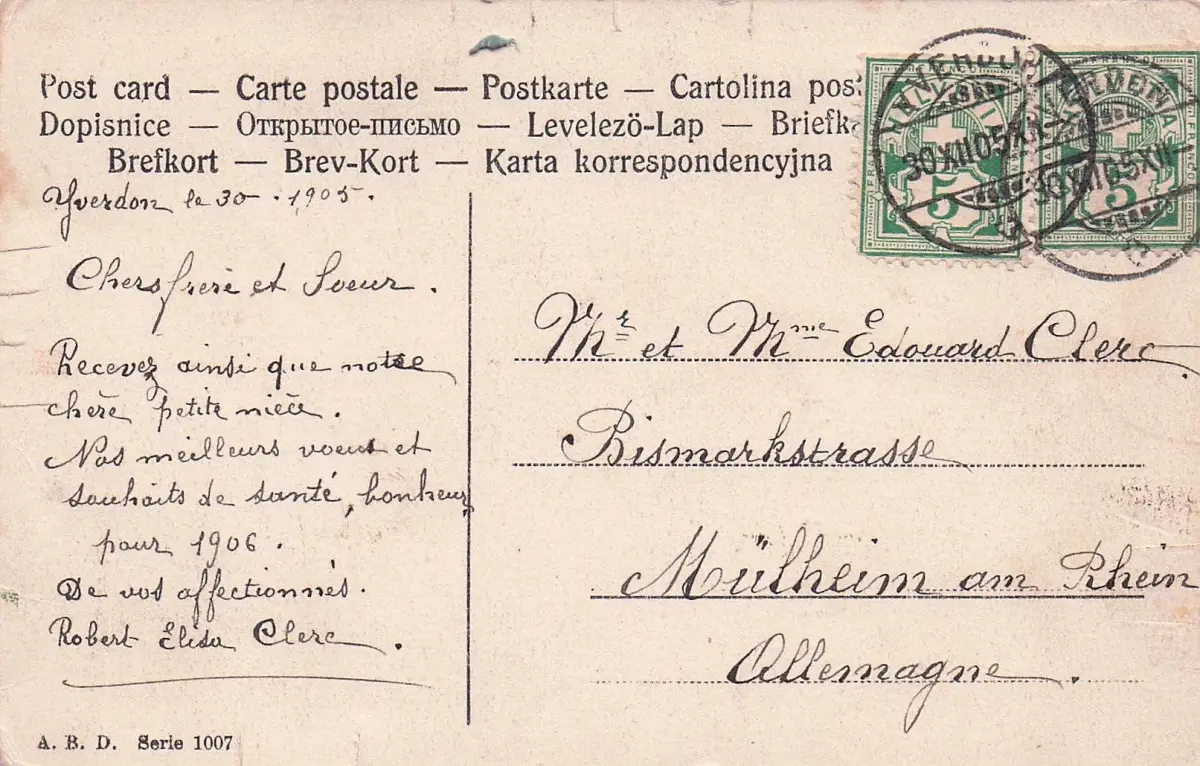 Post card — Carte postale — Postkarte — Cartolina pos
Dopisnice — Открытое-письмо — Levelező-Lap — Briefk
Brefkort — Brev-Kort — Karta korrespondencyjna
YVERDON
30 XII 05 XII
5
5
Yverdon le 30 . 1905.
Chers frère et Soeur.
Recevez ainsi que notre
chère petite nièce.
Nos meilleurs voeux et
souhaits de santé, bonheur,
pour 1906.
De vos affectionnés.
Robert Elisa Clerc.
Mr et Mme Edouard Clerc.
Bismarkstrasse
Mülheim am Rhein
Allemagne.
A. B. D. Serie 1007